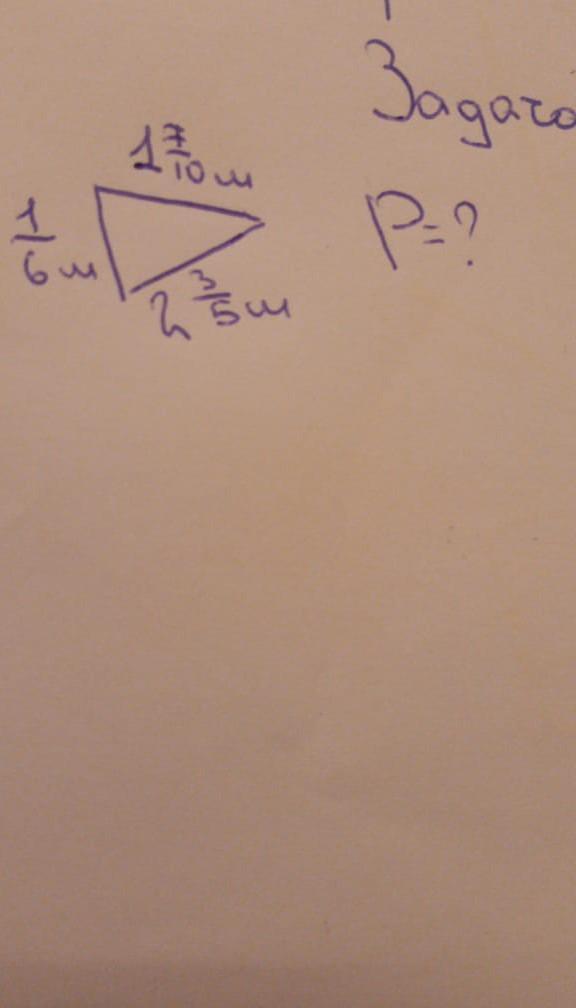 Задача
1 7/10 м
1/6 м
2 3/5 м
P=?